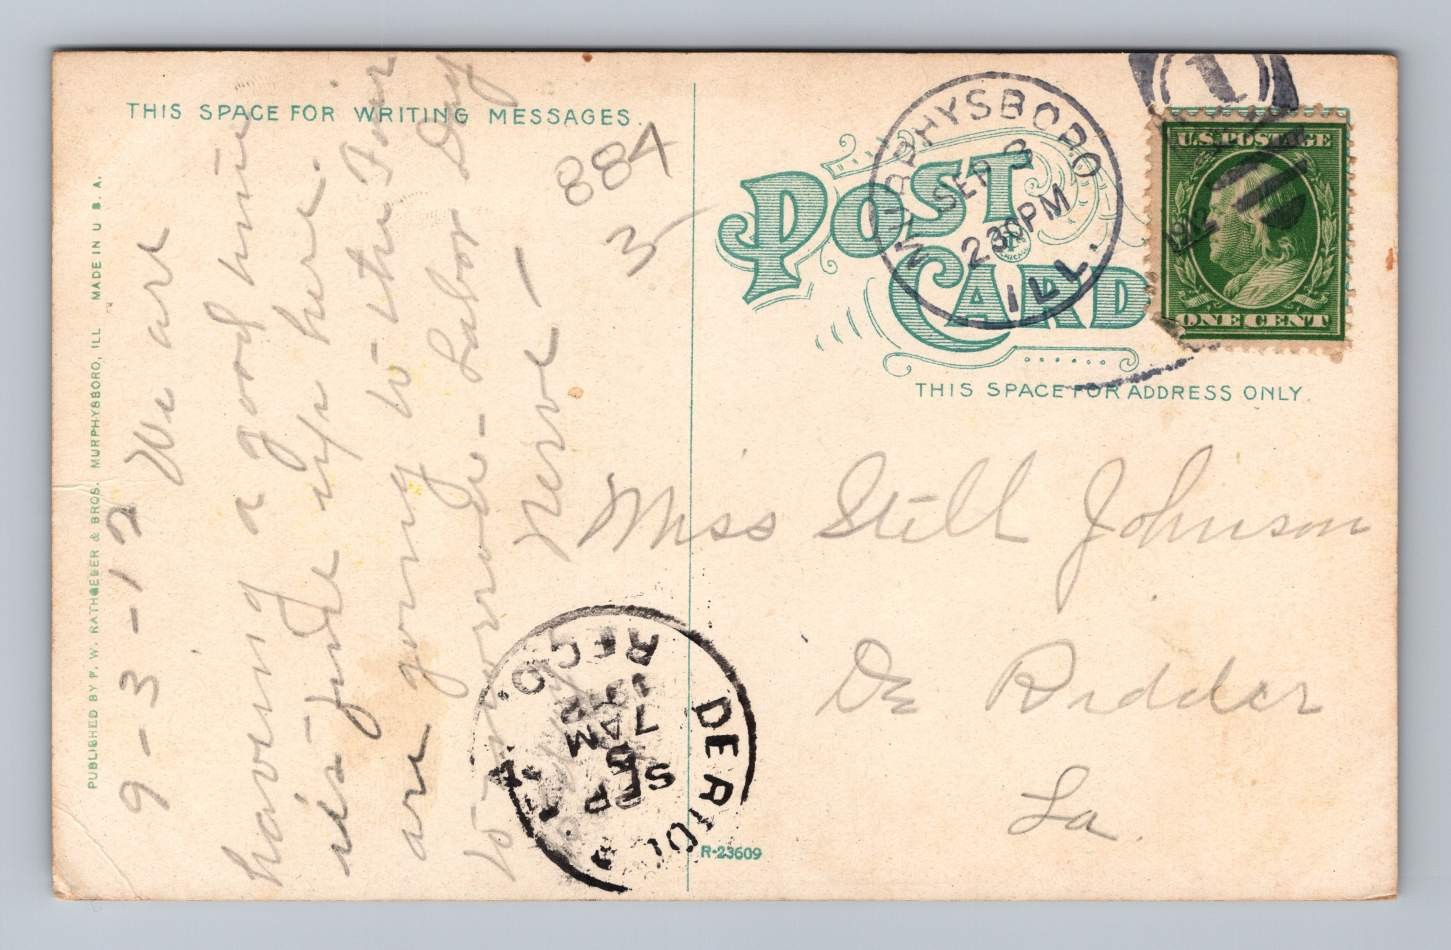 THIS SPACE FOR WRITING MESSAGES.
884
3
9-3-12 We are
having a good time
up here.
are going to the Fair
to-morrow - Labor Day
Nerve -
PUBLISHED BY F. W. RATHGEBER & BROS. MURPHYSBORO, ILL. MADE IN U. S. A.
POST
CARD
MURPHYSBORO
SEP 3
2 30PM
1912
ILL.
1
U.S. POSTAGE
ONE CENT
THIS SPACE FOR ADDRESS ONLY.
Miss Still Johnson
De Ridder
La.
REC'D.
1912
7 AM
5
SEP
R-23609